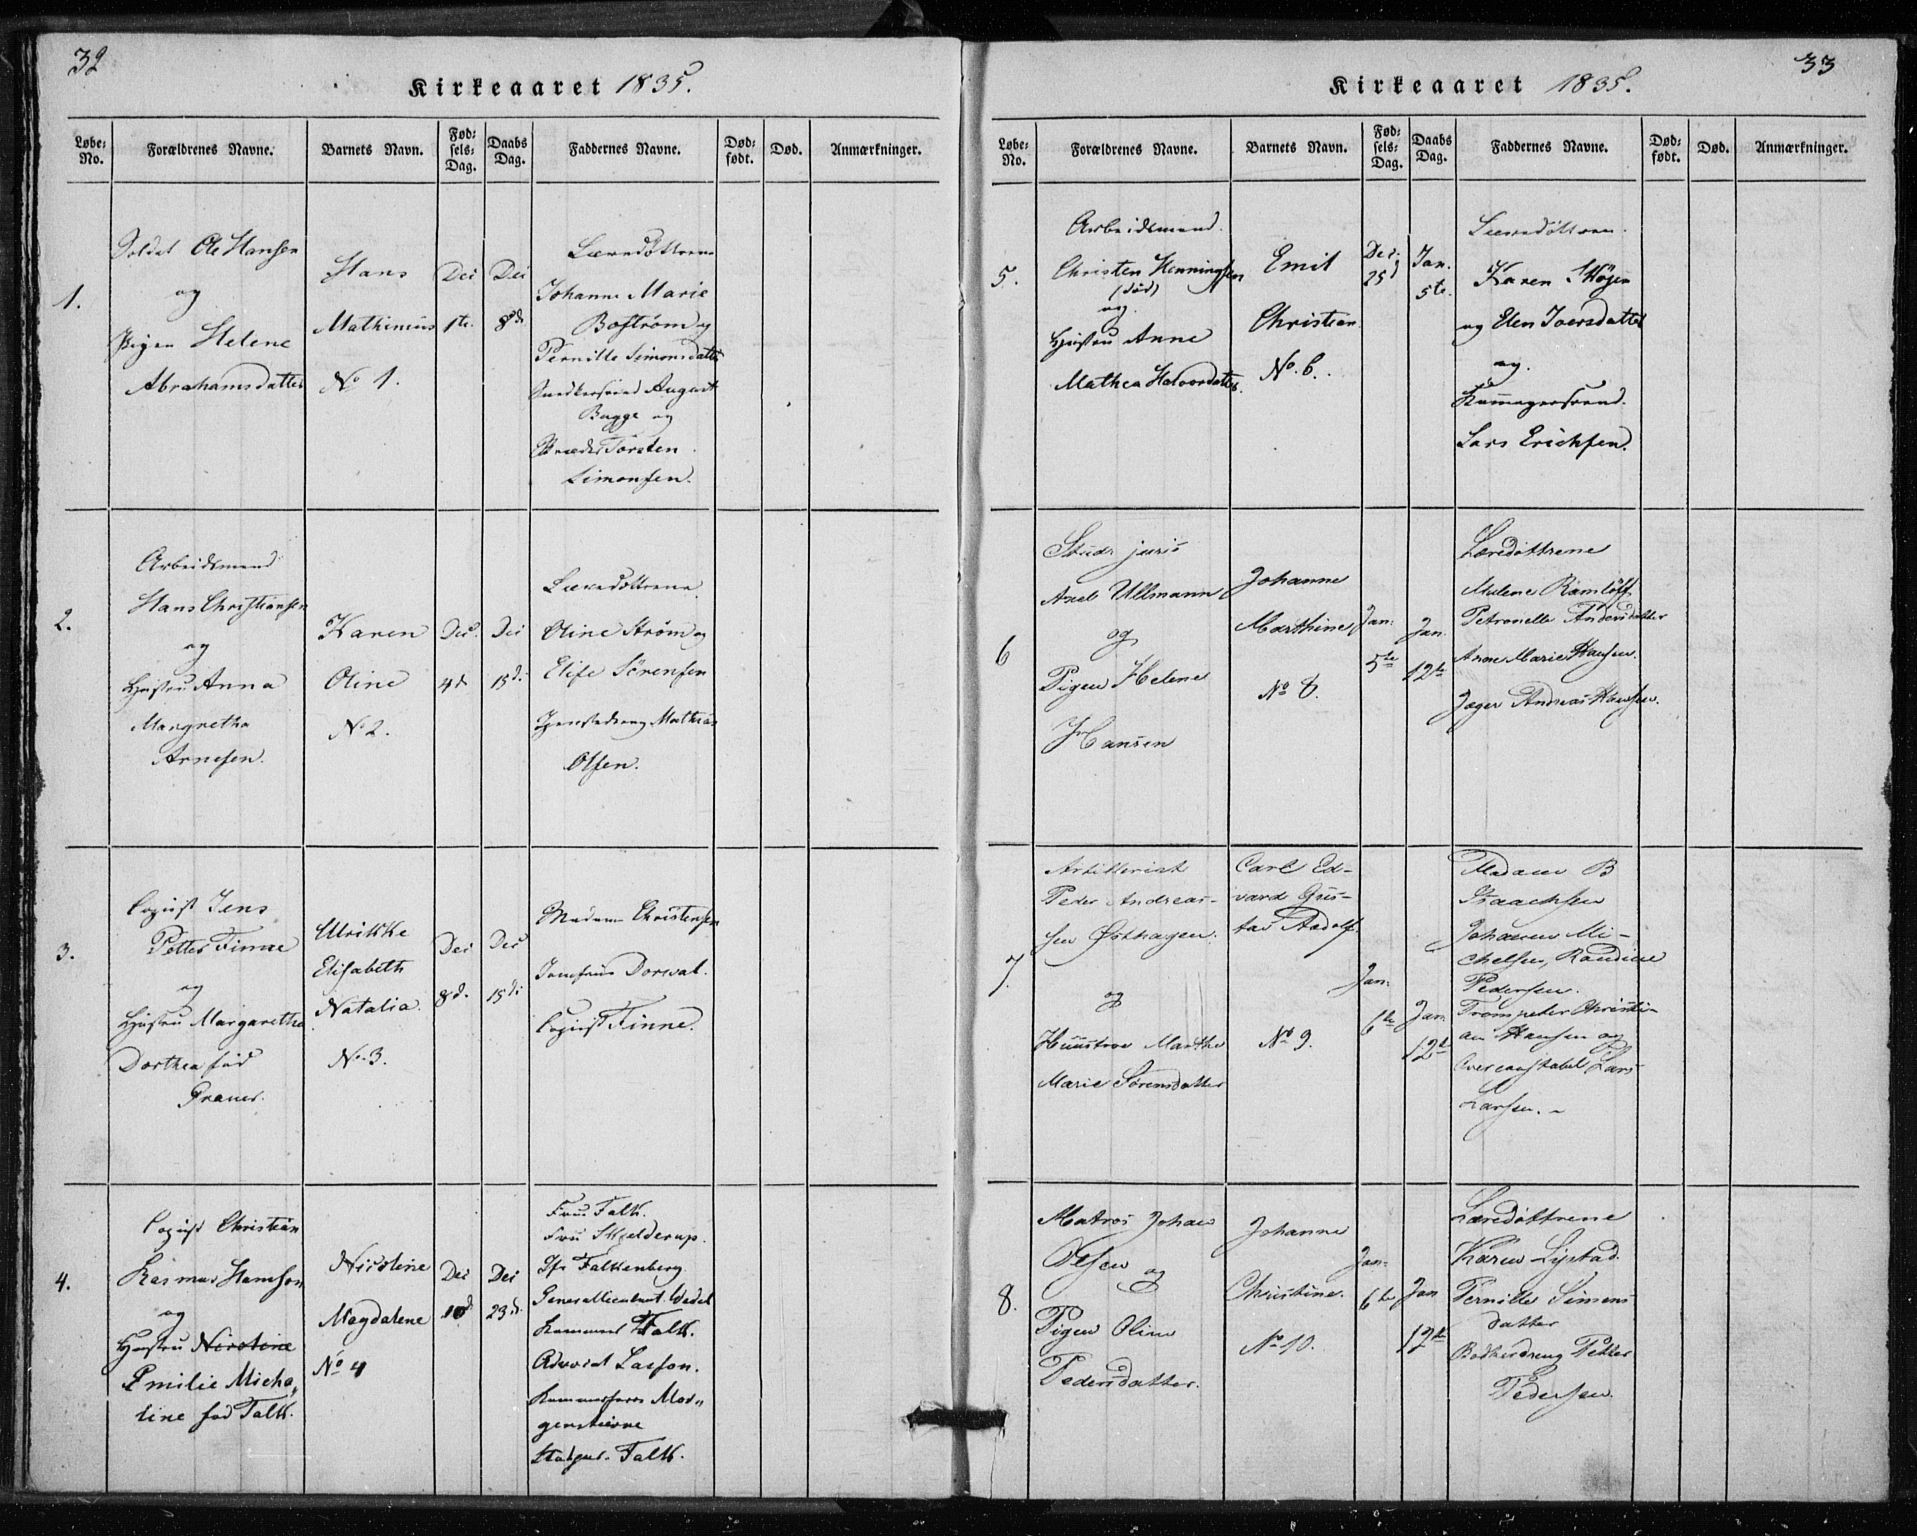 32
Kirkeaaret 1835.
Løbe-No.
Forældrenes Navne.
Barnets Navn.
Fødsels-Dag.
Daabs Dag.
Faddernes Navne.
Dødfødt.
Død.
Anmærkninger.
1.
Soldat Ole Hansen
og
Pigen Helene
Abrahamsdatter
Hans
Mathinius
No 1.
Dec
1te
Dec
8de
Læredøttrene
Johanne Marie
Boström og
Pernille Simonsdatter
Snedkersvend August
Bagge og
Torsten
Simonsen.
2.
Arbeidsmand
Hans Christiansen
og
Hustru Anna
Margretha
Arnesen.
Karen
Oline
No 2.
Dec.
4d.
Dec
15d.
Læredøttrene
Oline Strøm og
Elise Sörensen
Mathias
Olsen.
3.
Copiist Jens
Petter Finne
og
Hustru Margaretha
Dorthea fød
Ulrikke
Elisabeth
Natalia.
No. 3.
Dec
8d.
Dec
15d.
Madame Christensen
Jomfrue Dorval.
Copiist Finne.
4.
Copiist Christian
Rasmus Hansson
og
Hustru Nicoline
Emilie Micha„
line fød Falk.
Nicoline
Magdalene
No 4
Dec
10d
Dec
23d.
Frue Falk.
Frue Skjelderup.
Jfr Falkenberg
Generallieutnant Wedel
Falk.
Advocat Lasson.
Mor„
genstierne
Falk.
33
Kirkeaaret 1835.
Løbe-No.
Forældrenes Navne.
Barnets Navn.
Fødsels-Dag.
Daabs Dag.
Faddernes Navne.
Dødfødt.
Død.
Anmærkninger.
5.
Arbeidsmand.
Christen Henningsen
(død)
og.
Hustru Anne
Mathea Halvordatter.
Emil
Christian
No. 6.
Dec.
25d
Jan.
5te.
Læredøttrene.
Karen Skøyen
og Elen Iversdatter
og.
Lars Erichsen.
6
Stud: juris
Axel Ullmann
og
Pigen Helene
Hansen
Johanne
Marthine
No 8.
Jan.
5te
Jan.
12te
Læredøttrene
Milene Ramlöff
Petronelle Andersdatter
Anne Marie Hansen.
Jæger Andreas Hansen.
7.
Artillerist
Peder Andreas-
sen Østhagen.
og
Huustroe Marthe
Marie Sörensdatter
Carl Ed-
vard Gus-
tav Aadolf.
No 9.
Jan.
6te
Jan.
12te
Madame B
Isaachsen
Johanne Mi-
chelsen, Randine
Pedersen.
Trompeter Christi-
an Hansen og
Overconstabel Lars
Larsen.
8.
Matros Johan
Olsen og
Pigen Oline
Pedersdatter.
Johanne
Christine.
No 10.
Jan.
6te
Jan
12te
Læredøttrene
Karen Lystad.
Pernille Simens
datter
Bødkerdreng Petter
Pedersen.